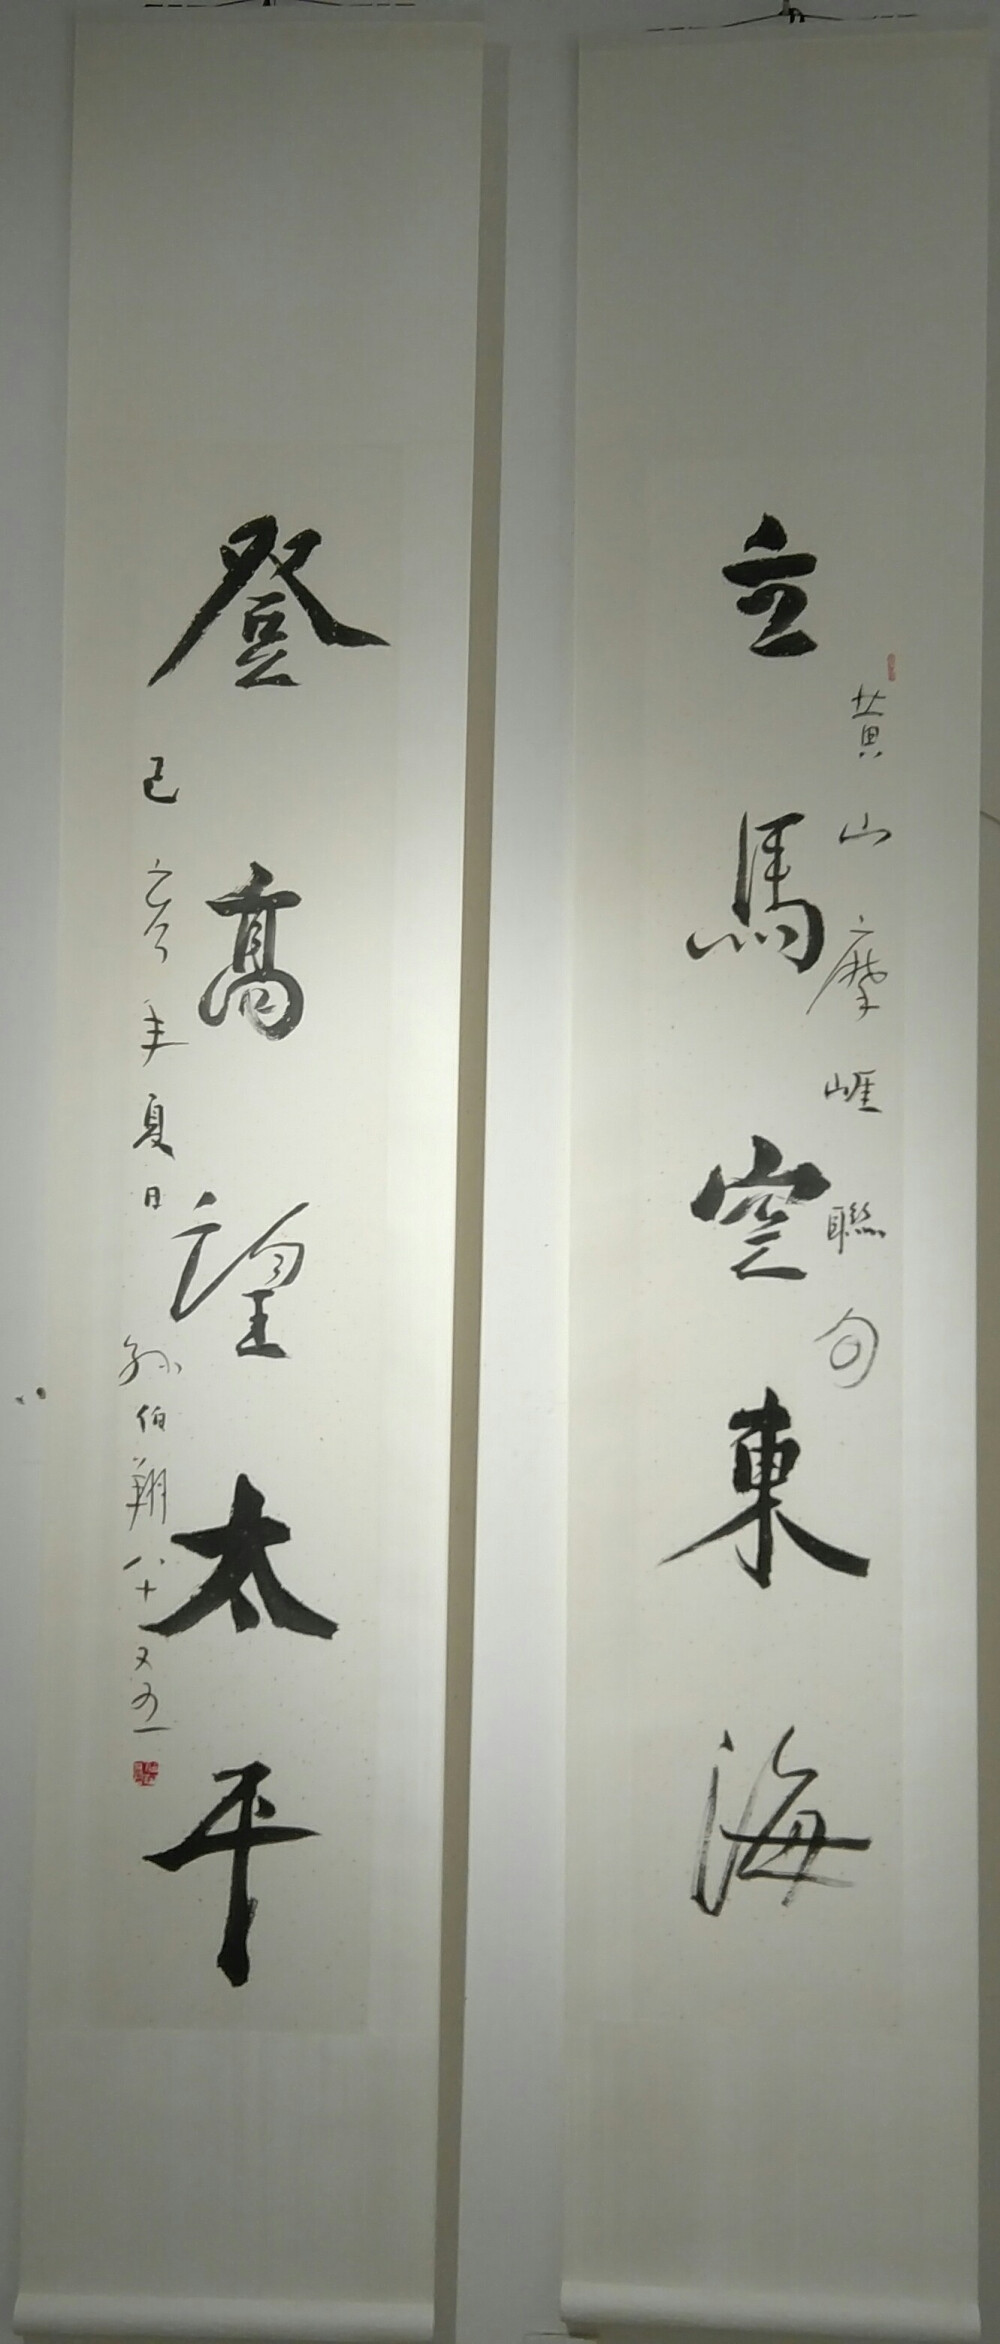 立馬空東海
黄山摩崕聯句
登高望太平
己亥年夏日
孫伯翔八十又五